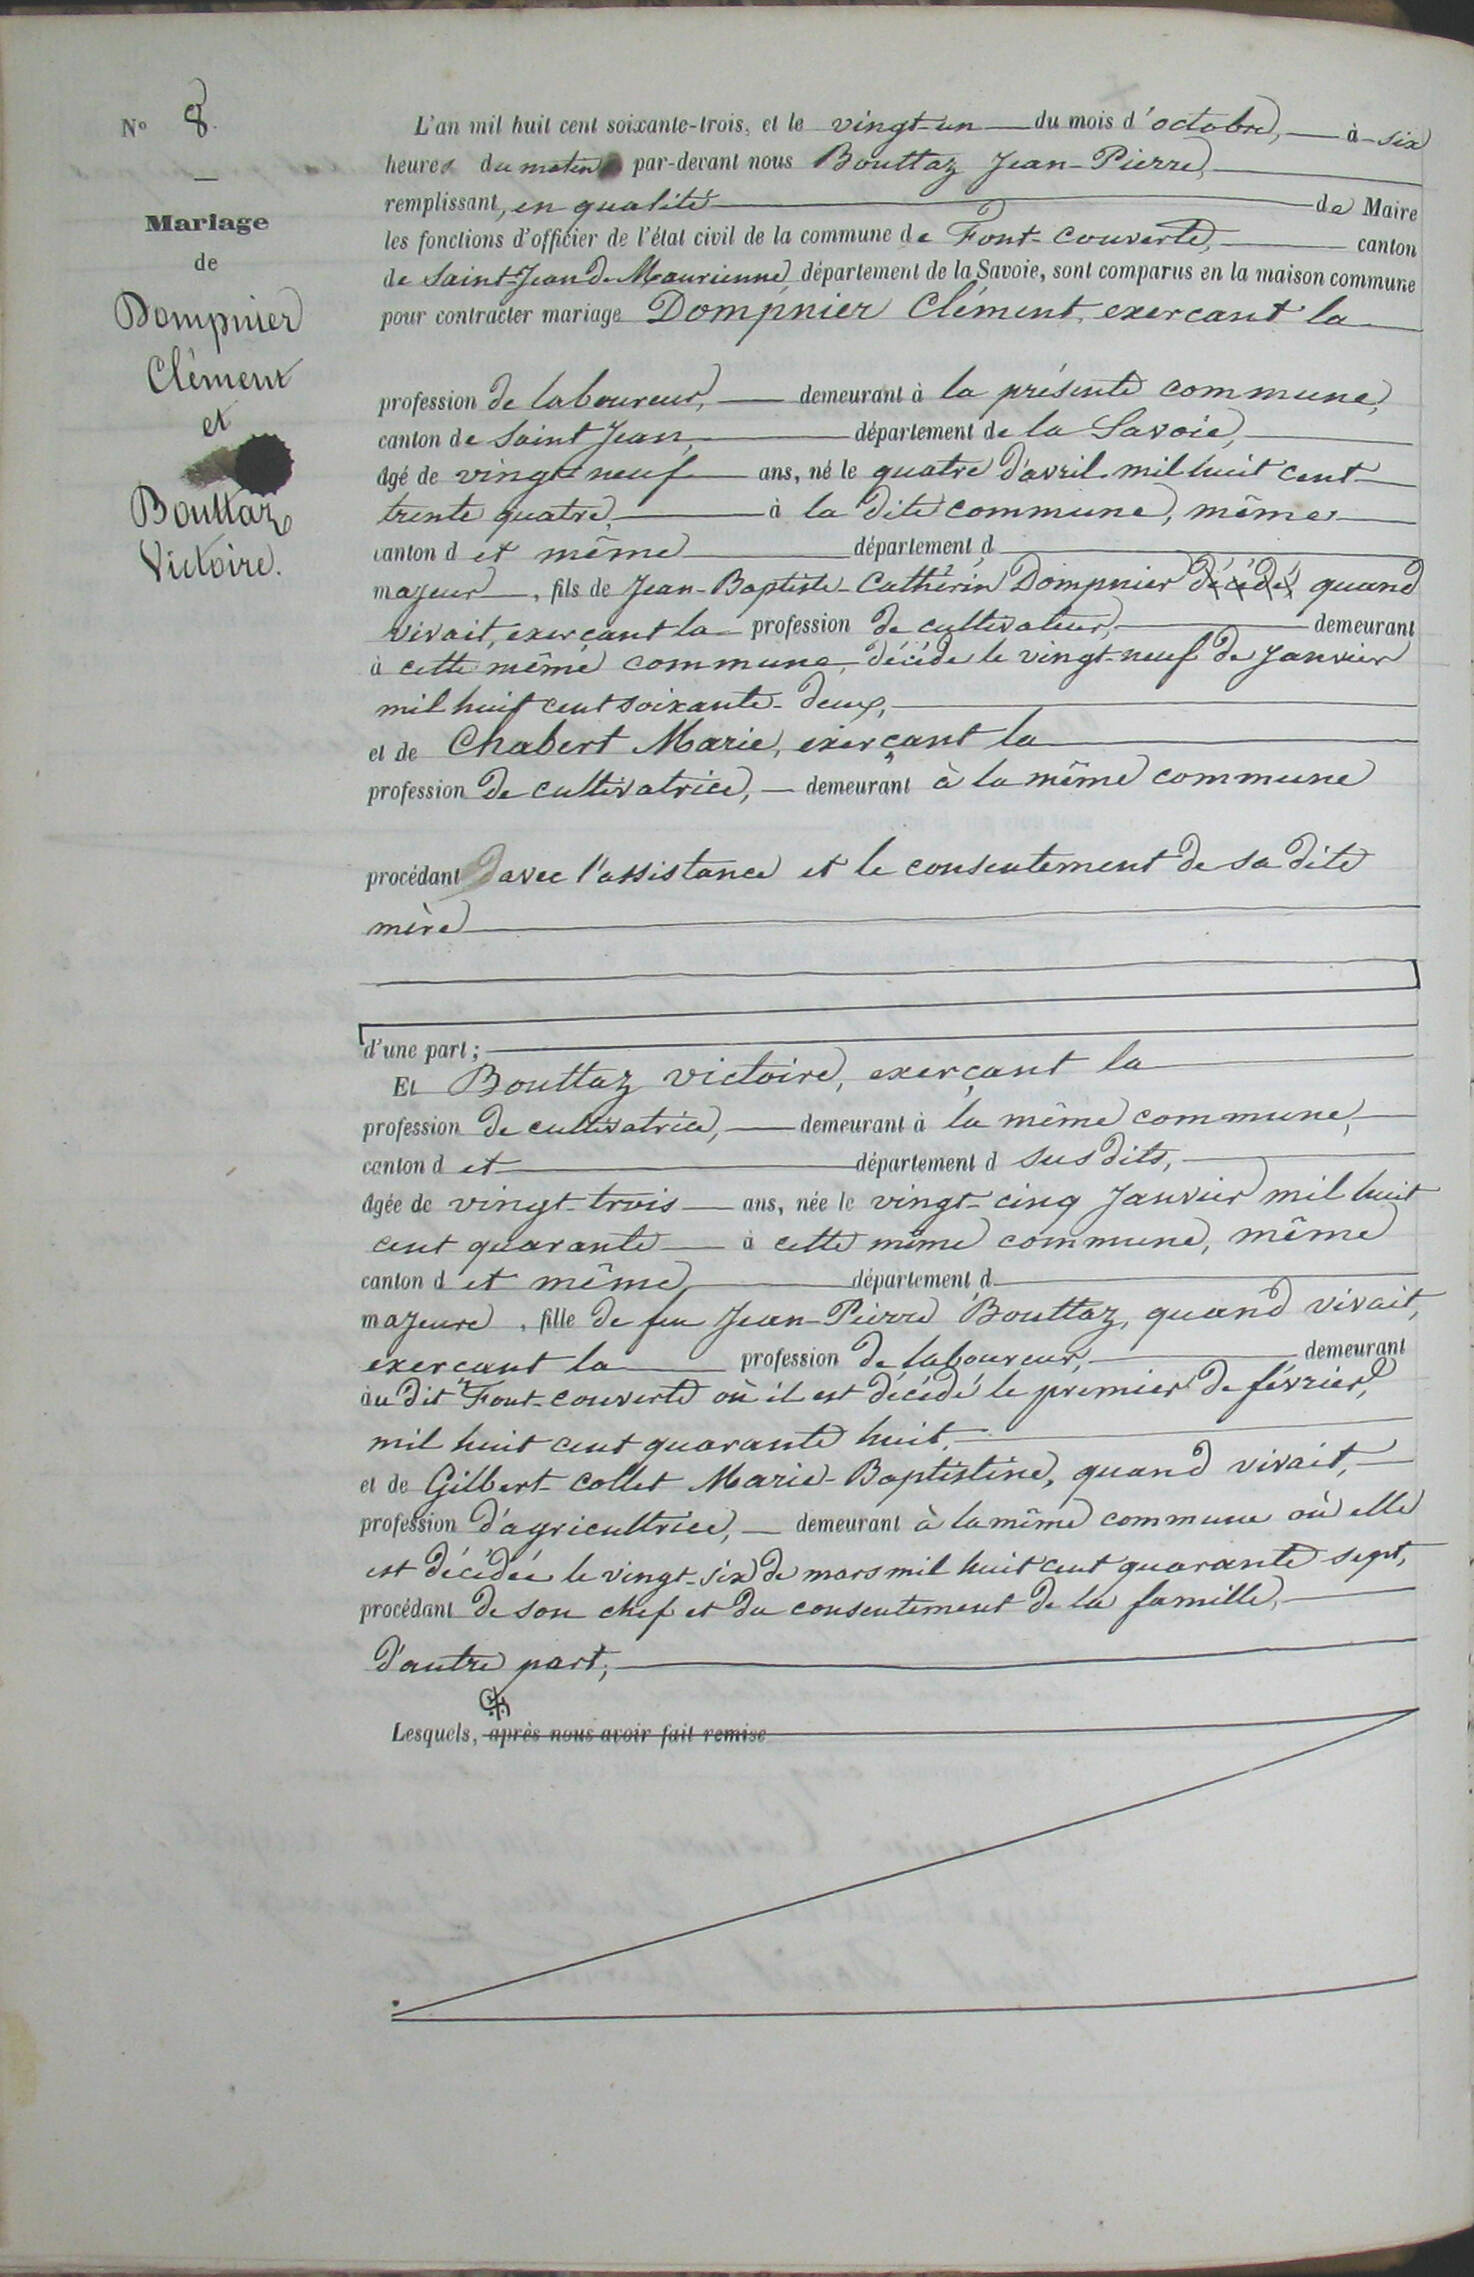 N° 8.
Mariage
de
Dompnier
Clément
et
Bouttaz
Victoire.
L'an mil huit cent soixante-trois, et le vingt-un du mois d'octobre, à six
heures du matin par-devant nous Bouttaz Jean-Pierre,
remplissant, en qualité de Maire
les fonctions d'officier de l'état civil de la commune de Font-couverte, canton
de Saint-Jean de Maurienne, département de la Savoie, sont comparus en la maison commune
pour contracter mariage Dompnier Clément, exercant la
profession de laboureur, demeurant à la présente commune,
canton de Saint Jean, département de la Savoie,
âgé de vingt-neuf ans, né le quatre d'avril mil huit cent
trente quatre, à la dite commune, même
canton d et même département d
majeur, fils de Jean-Baptiste-Cathérin Dompnier décédé quand
vivait, exerçant la profession de cultivateur, demeurant
à cette même commune, décédé le vingt-neuf de Janvier
mil huit cent soixante-deux,
et de Chabert Marie, exerçant la
profession de cultivatrice, demeurant à la même commune
procédant avec l'assistance et le consentement de sa dite
mère
d'une part ;
Et Bouttaz victoire, exerçant la
profession de cultivatrice, demeurant à la même commune,
canton d et département d sus dits,
âgée de vingt-trois ans, née le vingt-cinq Janvier mil huit
cent quarante à cette même commune, même
canton d et même département d
majeure, fille de feu Jean-Pierre Bouttaz, quand vivait,
exercant la profession de laboureur, demeurant
au dit Font-couverte où il est décédé le premier de février,
mil huit cent quarante huit,
et de Gilbert-Collet Marie-Baptistine, quand vivait,
profession d'agricultrice, demeurant à la même commune où elle
est décédée le vingt-six de mars mil huit cent quarante sept,
procédant de son chef et du consentement de la famille,
d'autre part,
Lesquels, après nous avoir fait remise